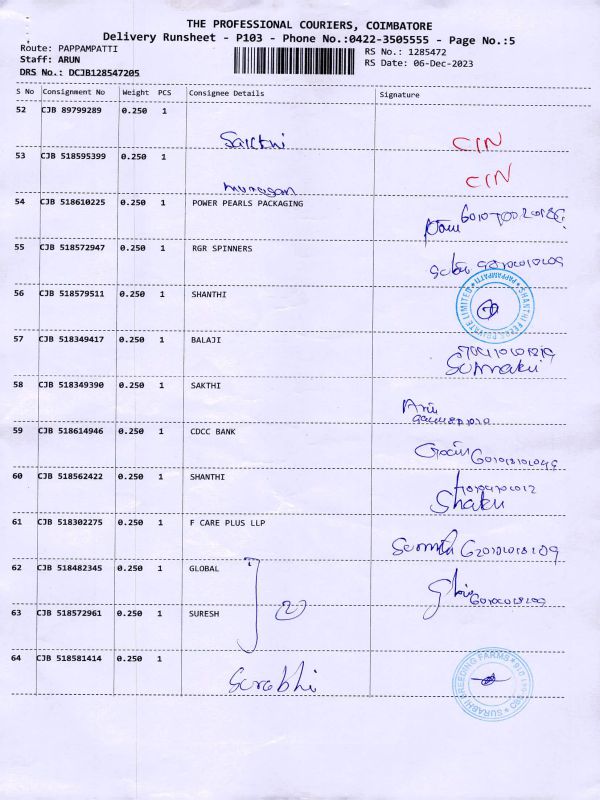 THE PROFESSIONAL COURIERS, COIMBATORE
Delivery Runsheet - P103 - Phone No.:0422-3505555 - Page No.:5
Route: PAPPAMPATTI
RS No.: 1285472
Staff: ARUN
RS Date: 06-Dec-2023
DRS No.: DCJB128547205
S No Consignment No Weight PCS Consignee Details Signature
52 CJB 89799289 0.250 1
Sakthi CIN
53 CJB 518595399 0.250 1
murugan CIN
54 CJB 518610225 0.250 1 POWER PEARLS PACKAGING
55 CJB 518572947 0.250 1 RGR SPINNERS
56 CJB 518579511 0.250 1 SHANTHI
SHANTHI FEEDS PRIVATE LIMITED * PAPPAMPATTI *
57 CJB 518349417 0.250 1 BALAJI
58 CJB 518349390 0.250 1 SAKTHI
59 CJB 518614946 0.250 1 CDCC BANK
60 CJB 518562422 0.250 1 SHANTHI
61 CJB 518302275 0.250 1 F CARE PLUS LLP
62 CJB 518482345 0.250 1 GLOBAL
63 CJB 518572961 0.250 1 SURESH
2
64 CJB 518581414 0.250 1
Surabhi
SURABHI BREEDING FARMS